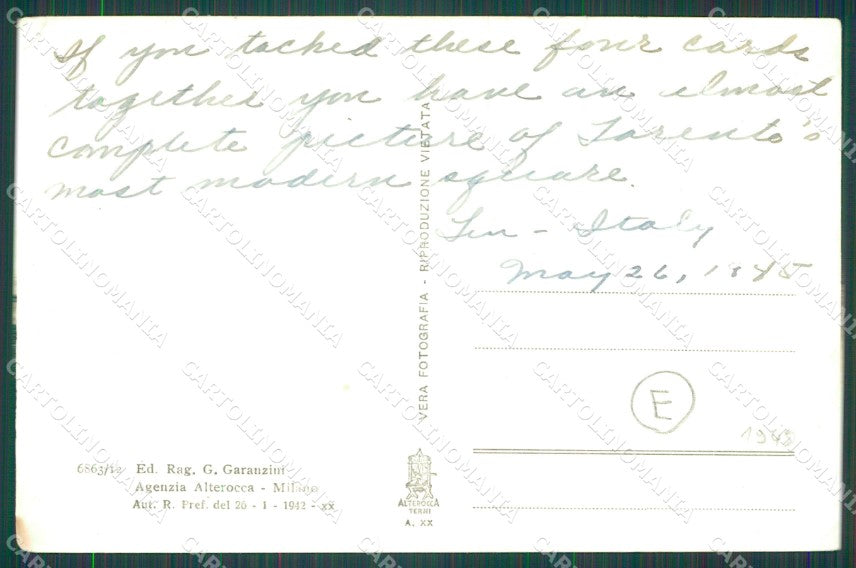 If you tacked these four cards
together you have an almost
complete picture of Tarento's
most modern square.
Len - Italy
May 26, 1945
VERA FOTOGRAFIA - RIPRODUZIONE VIETATA
E
1945
6863/12 Ed. Rag. G. Garanzini
Agenzia Alterocca - Milano
Aut. R. Pref. del 26 - 1 - 1942 - XX
ALTEROCCA
TERNI
A. XX
CARTOLINOMANIA